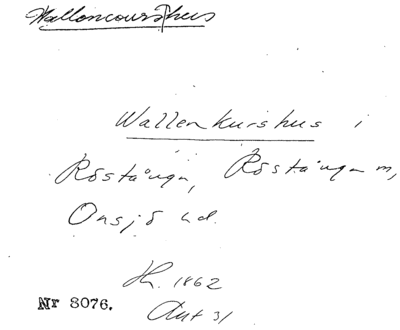 Walloncourshus
Wallenkurshus i
Röstånga, Röstånga m,
Onsjö hd.
Th. 1862
Ant 31
Nr 8076.